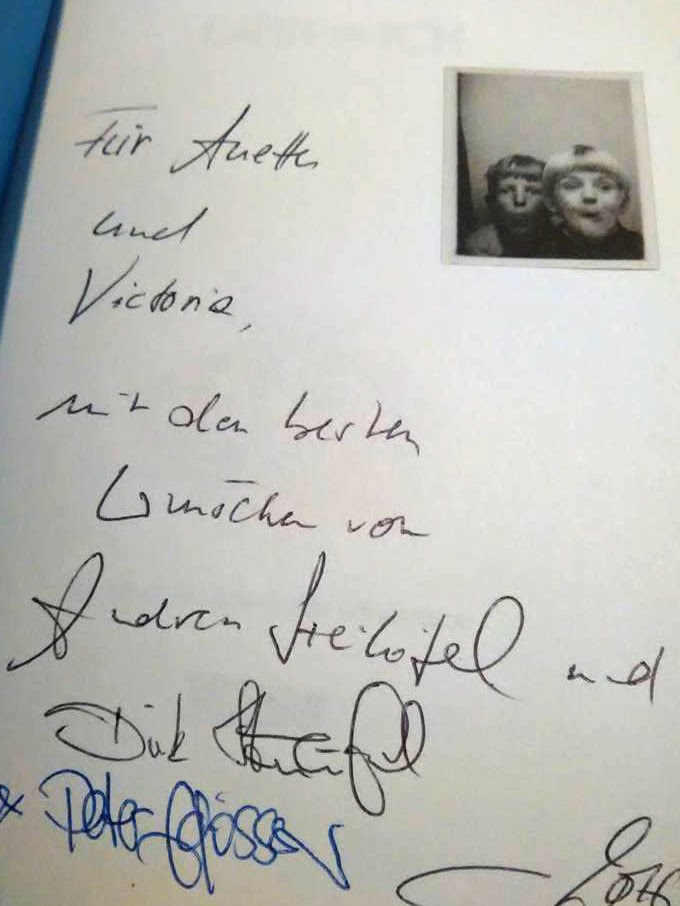 Für Anette
und
Victoria,
mit den besten
Wünschen von
Andreas Steinhöfel und
Dirk Steinhöfel
x Peter Schössow